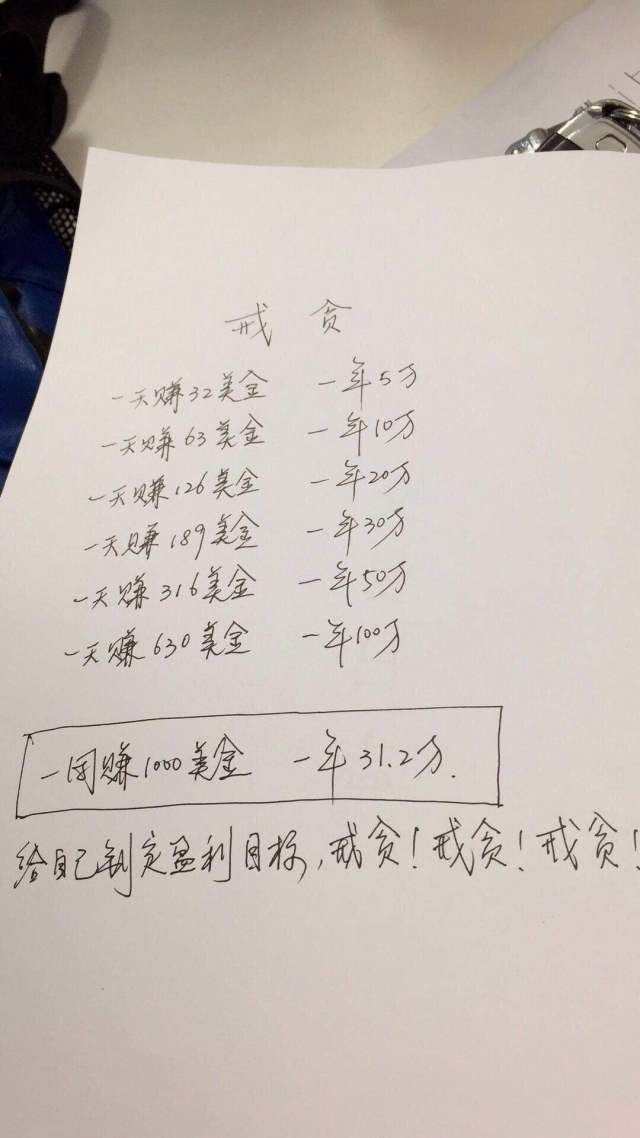 戒贪
一天赚32美金 一年5万
一天赚63美金 一年10万
一天赚126美金 一年20万
一天赚189美金 一年30万
一天赚316美金 一年50万
一天赚630美金 一年100万
一周赚1000美金 一年31.2万.
给自己制定盈利目标,戒贪!戒贪!戒贪!